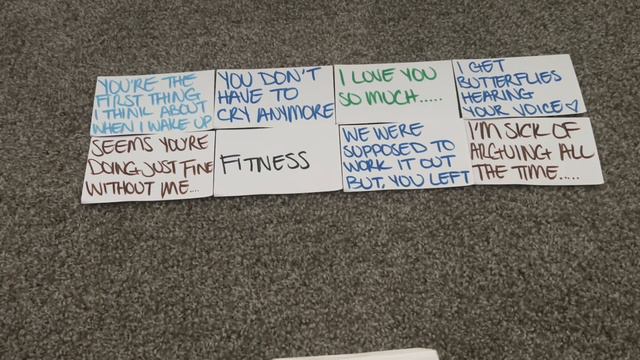 YOU'RE THE
FIRST THING
I THINK ABOUT
WHEN I WAKE UP
YOU DON'T
HAVE TO
CRY ANYMORE
I LOVE YOU
SO MUCH.....
I GET
BUTTERFLIES
HEARING
YOUR VOICE♡
SEEMS YOU'RE
DOING JUST FINE
WITHOUT ME...
FITNESS
WE WERE
SUPPOSED TO
WORK IT OUT
BUT, YOU LEFT
I'M SICK OF
ARGUING ALL
THE TIME.....